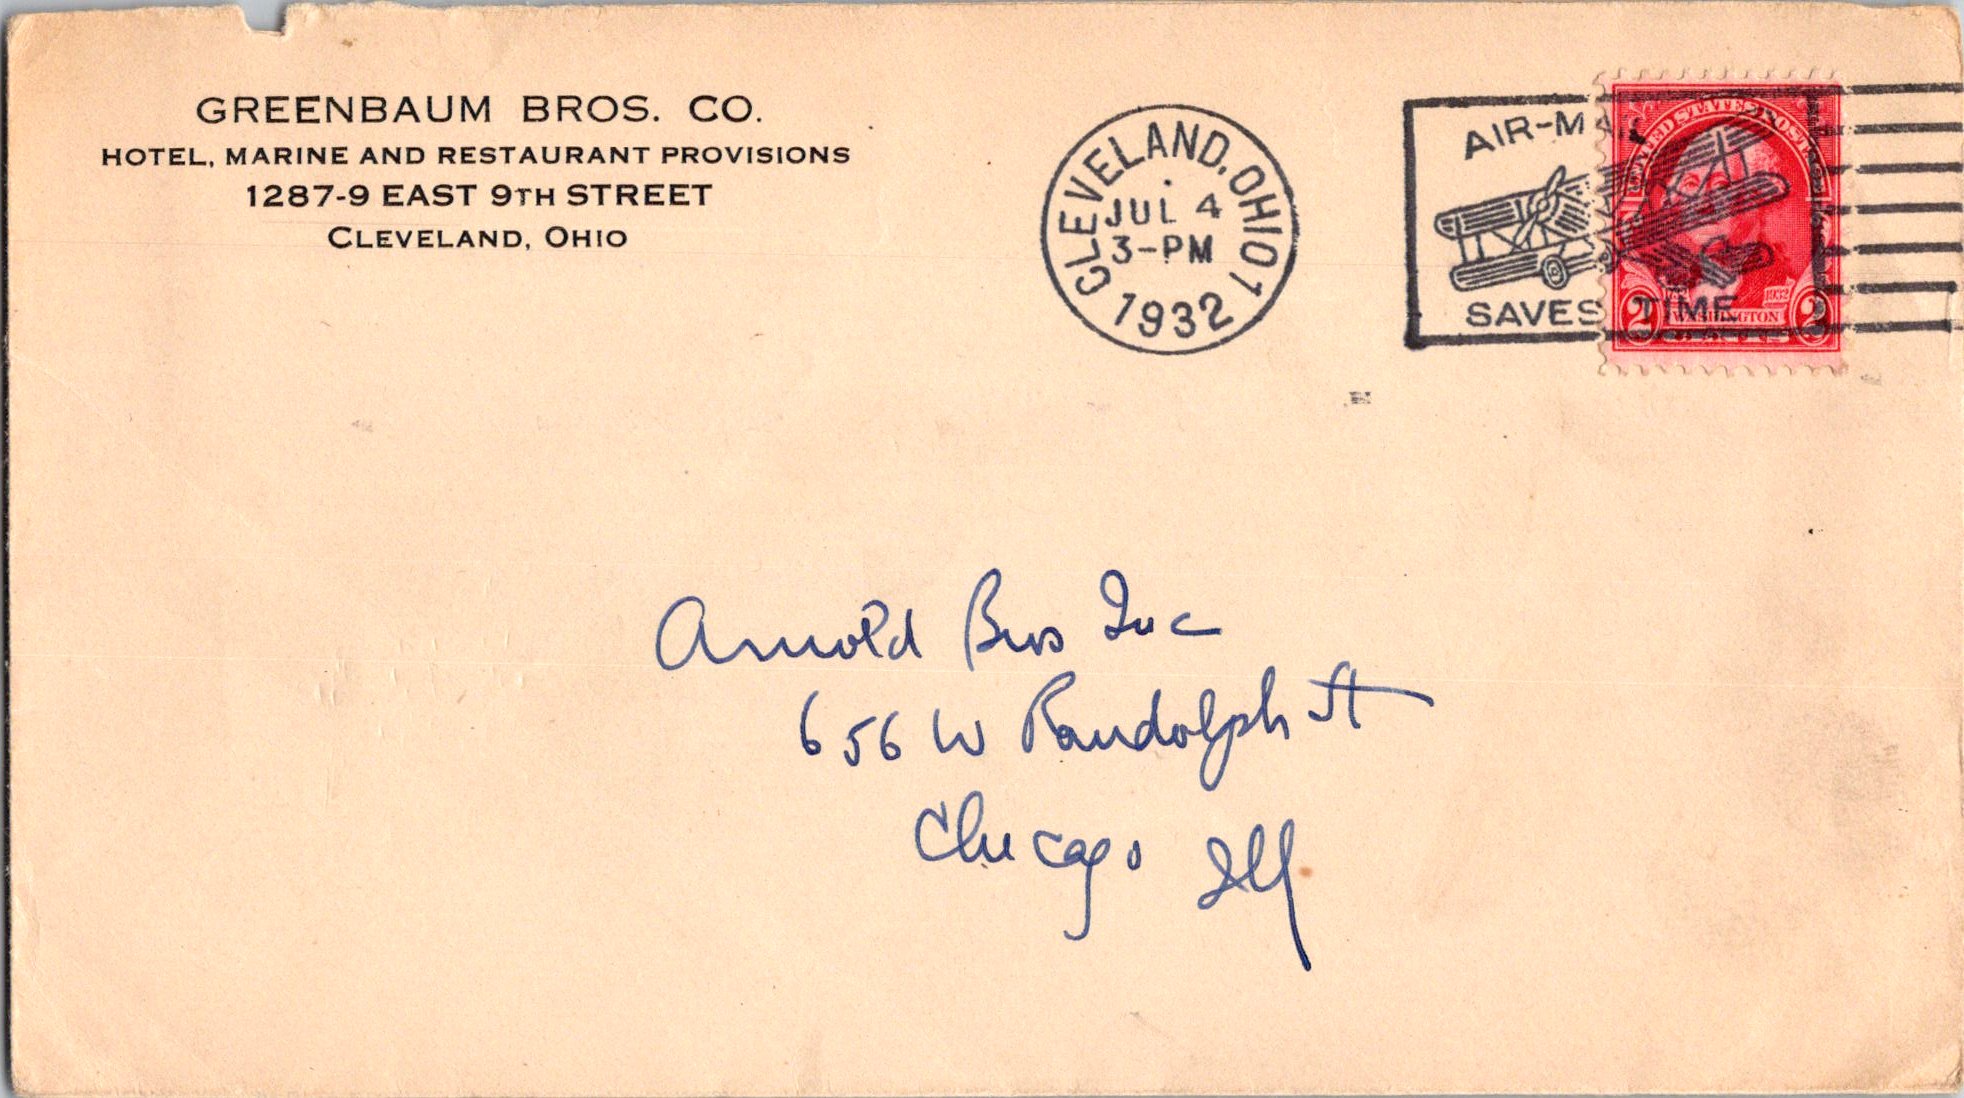 GREENBAUM BROS. CO.
HOTEL, MARINE AND RESTAURANT PROVISIONS
1287-9 EAST 9TH STREET
CLEVELAND, OHIO
CLEVELAND, OHIO 1
JUL 4
3-PM
1932
AIR-MAIL
SAVES TIME
UNITED STATES POSTAGE
1932
WASHINGTON
2 2
Arnold Bros Inc
656 W Randolph St
Chicago Ill